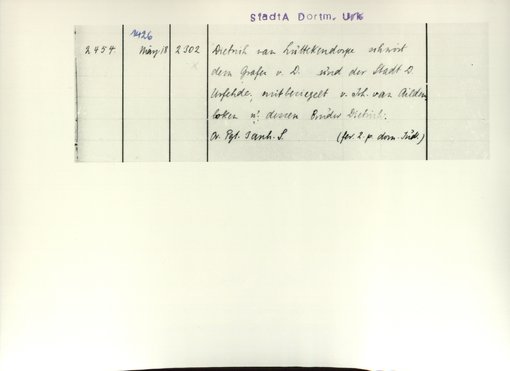 StadtA Dortm. Urk
1426
2454 März 18 2302 Dietrich van Lüttekendorpe schwört
dem Grafen v. D. und der Stadt D.
Urfehde, mitbesiegelt v. Joh. van
u. dessen Bruder Dietrich.
Or. Pgt. 1 anh. S. (fer. 2. p. dom. Jud.)